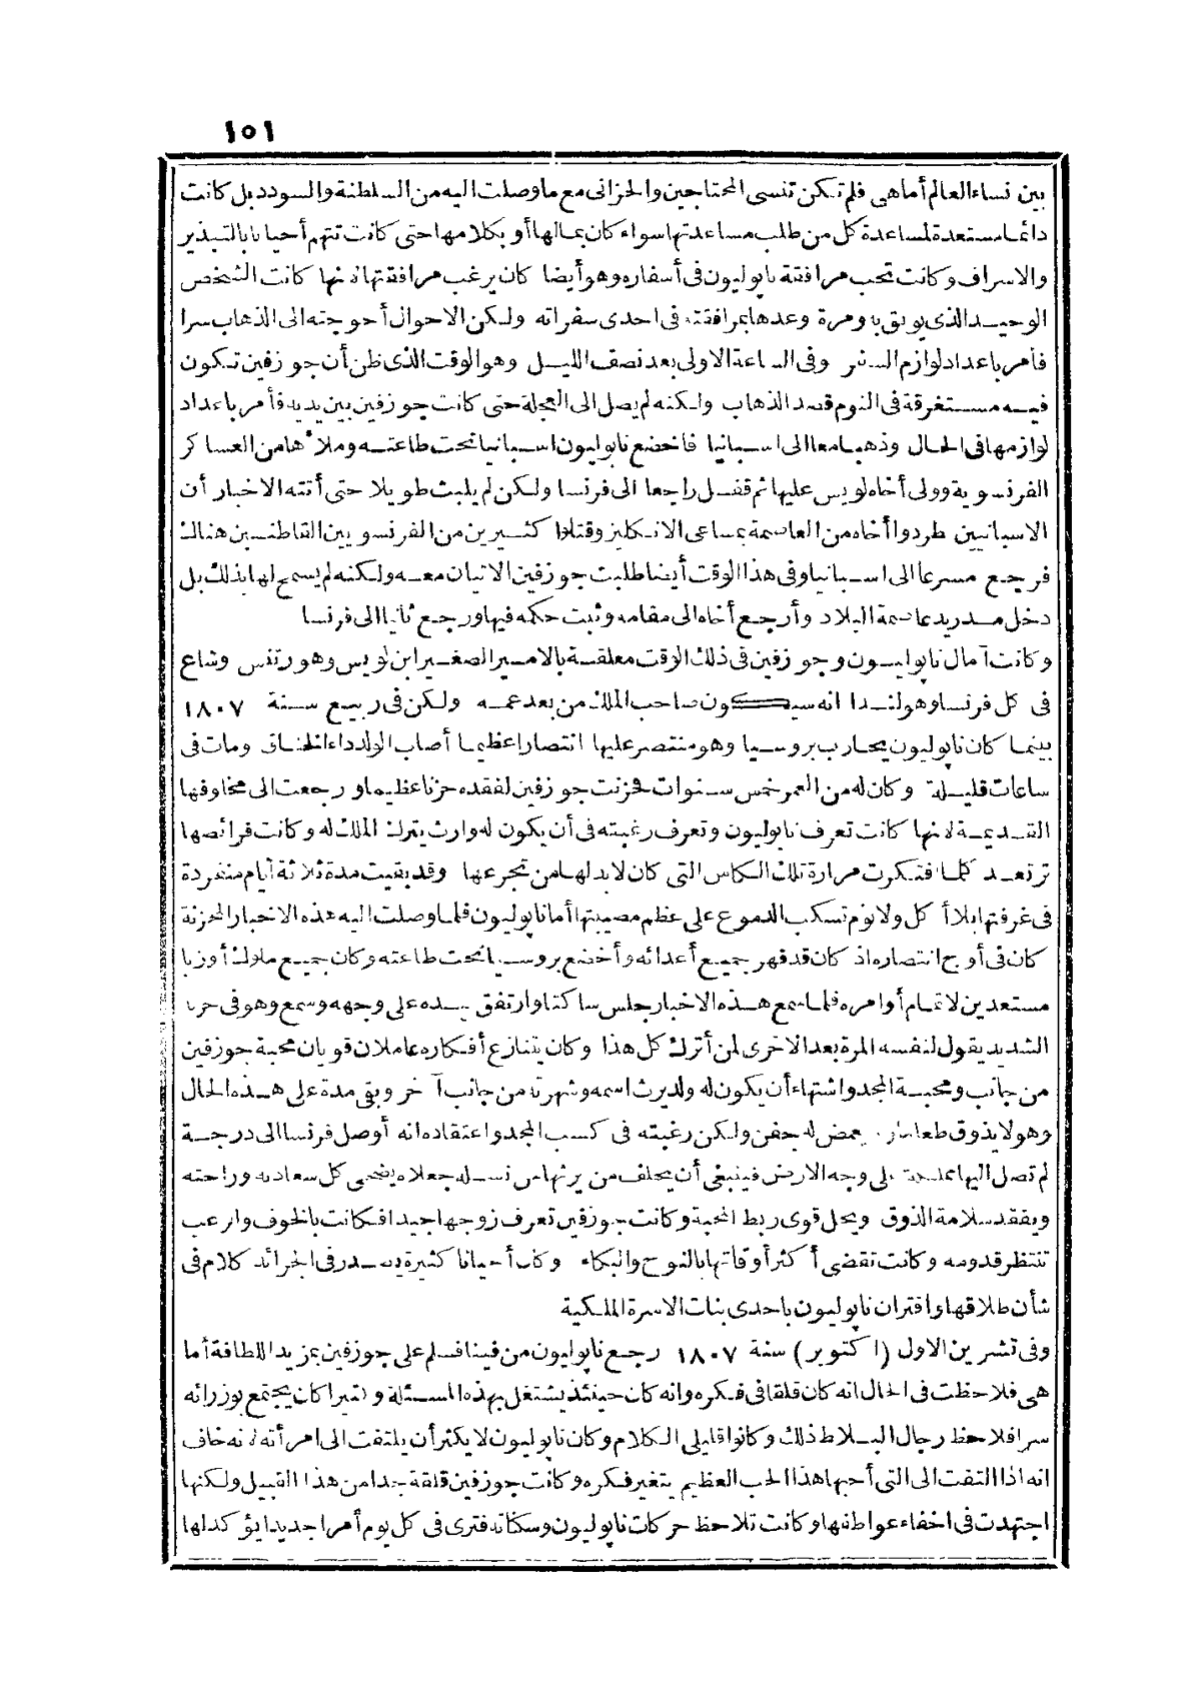 ١٥١
بين نساء العالم أما هى فلم تكن تنسى المحتاجين والحزانى مع ما وصلت اليه من السلطنة والسودد بل كانت
دائما مستعدة لمساعدة كل من طلب مساعدتها سواء كان بمالها أو بكلامها حتى كانت تتهم أحيانا بالتبذير
والاسراف وكانت تحب مرافقة نابوليون فى أسفاره وهو أيضا كان يرغب مرافقتها لانها كانت الشخص
الوحيد الذى يوثق به ومرة وعدها بمرافقته فى احدى سفراته ولكن الاحوال أحوجته الى الذهاب سرا
فأمر باعداد لوازم السفر وفى الساعة الاولى بعد نصف الليل وهو الوقت الذى ظن أن جوزفين تكون
فيه مستغرقة فى النوم قصد الذهاب ولكنه لم يصل الى العجلة حتى كانت جوزفين بين يديه فأمر باعداد
لوازمها فى الحال وذهبا معا الى اسبانيا فأخضع نابوليون اسبانيا تحت طاعته وملأها من العساكر
الفرنسوية وولى أخاه لويس عليها ثم قفل راجعا الى فرنسا ولكن لم يلبث طويلا حتى أتته الاخبار أن
الاسبانيين طردوا أخاه من العاصمة بمساعى الانكليز وقتلوا كثيرين من الفرنسويين القاطنين هنالك
فرجع مسرعا الى اسبانيا وفى هذا الوقت أيضا طلبت جوزفين الاتيان معه ولكنه لم يسمح لها بذلك بل
دخل مدريد عاصمة البلاد وأرجع أخاه الى مقامه وثبت حكمه فيها ورجع ثانيا الى فرنسا
وكانت آمال نابوليون وجوزفين فى ذلك الوقت معلقة بالامير الصغير ابن لويس وهورتنس وشاع
فى كل فرنسا وهولندا انه سيكون صاحب الملك من بعد عمه ولكن فى ربيع سنة ١٨٠٧
بينما كان نابوليون يحارب بروسيا وهو منتصر عليها انتصارا عظيما أصاب الولد داء الخناق ومات فى
ساعات قليلة وكان له من العمر خمس سنوات فحزنت جوزفين لفقده حزنا عظيما ورجعت الى مخاوفها
القديمة لانها كانت تعرف نابوليون وتعرف رغبته فى أن يكون له وارث يترك الملك له وكانت فرائصها
ترتعد كلما افتكرت مرارة تلك الكاس التى كان لابد لها من تجرعها وقد بقيت مدة ثلاثة أيام منفردة
فى غرفتها بلا أكل ولا نوم تسكب الدموع على عظم مصيبتها أما نابوليون فلما وصلت اليه هذه الاخبار المحزنة
كان فى أوج انتصاره اذ كان قد قهر جميع أعدائه وأخضع بروسيا تحت طاعته وكان جميع ملوك أوربا
مستعدين لاتمام أوامره فلما سمع هذه الاخبار جلس ساكتا وارتفق بيده على وجهه وسمع وهو فى حزنه
الشديد يقول لنفسه المرة بعد الاخرى لمن أترك كل هذا وكان يتنازع أفكاره عاملان قويان محبة جوزفين
من جانب ومحبة المجد واشتهاء أن يكون له ولد يرث اسمه وشهرته من جانب آخر وبقى مدة على هذه الحال
وهو لا يذوق طعاما ... يغمض له جفن ولكن رغبته فى كسب المجد واعتقاده انه أوصل فرنسا الى درجة
لم تصل اليها مملكة على وجه الارض فينبغى أن يخلف من يرثها من نسله جعلاه يضحى كل سعادته وراحته
ويفقد سلامة الذوق ويحل قوى ربط المحبة وكانت جوزفين تعرف زوجها جيدا فكانت بالخوف والرعب
تنتظر قدومه وكانت تقضى أكثر أوقاتها بالنوح والبكاء وكان أحيانا كثيرة يصدر فى الجرائد كلام فى
شأن طلاقها واقتران نابوليون باحدى بنات الاسرة الملكية
وفى تشرين الاول (اكتوبر) سنة ١٨٠٧ رجع نابوليون من فينا فسلم على جوزفين بمزيد اللطافة أما
هى فلاحظت فى الحال انه كان قلقا فى فكره وانه كان حينئذ يشتغل بهذه المسئلة وكثيرا كان يجتمع بوزرائه
سرا فلاحظ رجال البلاط ذلك وكانوا قليلى الكلام وكان نابوليون لا يكثر أن يلتفت الى امرأته لانه خاف
انه اذا التفت الى التى أحبها هذا الحب العظيم يتغير فكره وكانت جوزفين قلقة جدا من هذا القبيل ولكنها
اجتهدت فى اخفاء عواطفها وكانت تلاحظ حركات نابوليون وسكناته فترى فى كل يوم أمرا جديدا يؤكد لها